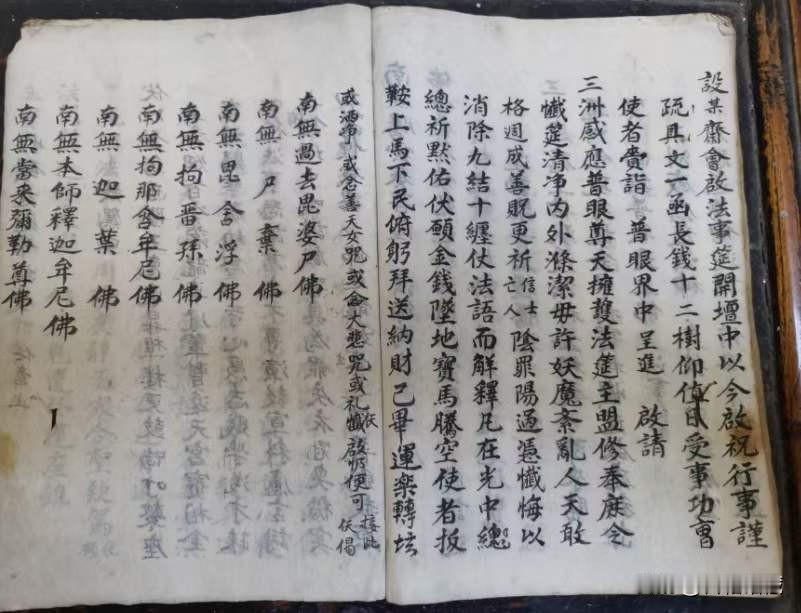 設某齋會啟法事筵開壇中以今啟祝行事謹
疏具文一函長錢十二樹仰值日受事功曹
使者賫詣 普眼界中呈進 啟請
三洲感應普眼尊天擁護法筵主盟修奉庶令
懺筵清净内外滌潔毋許妖魔紊亂人天敢
格週成善貺更祈信士亡人陰罪陽過憑懺悔以
消除九結十纏仗法語而解釋凡在光中總
總祈默佑伏願金錢墜地寶馬騰空使者扳
鞍上馬下民俯躬拜送納財已畢運樂轉坛
或酒净或念善天女咒或念大悲咒或礼懺啟仍便可接此
依
伏偈
南無過去毘婆尸佛
南無尸棄佛
南無毘舍浮佛
南無拘畱孫佛
南無拘那含牟尼佛
南無迦葉佛
南無本師釋迦牟尼佛
南無當来彌勒尊佛